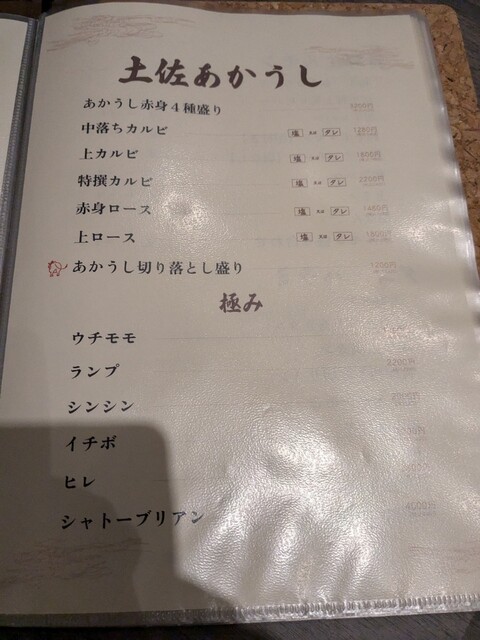 土佐あかうし
あかうし赤身４種盛り
中落ちカルビ 塩 タレ
上カルビ 塩 タレ 1600円
特撰カルビ 塩 タレ 2200円
赤身ロース 塩 タレ 1400円
上ロース 塩 タレ 1800円
あかうし切り落とし盛り 1200円
極み
ウチモモ
ランプ 2200円
シンシン
イチボ
ヒレ
シャトーブリアン 4000円